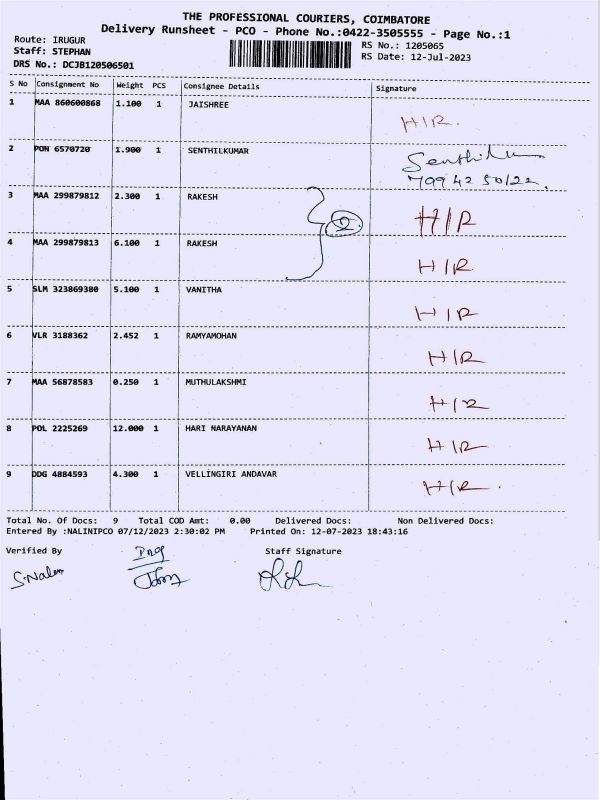 THE PROFESSIONAL COURIERS, COIMBATORE
Delivery Runsheet - PCO - Phone No.:0422-3505555 - Page No.:1
Route: IRUGUR
Staff: STEPHAN
DRS No.: DCJB120506501
RS No.: 1205065
RS Date: 12-Jul-2023
S No Consignment No Weight PCS Consignee Details Signature
1 MAA 860600868 1.100 1 JAISHREE H/R.
2 PON 6570720 1.900 1 SENTHILKUMAR
3 MAA 299879812 2.300 1 RAKESH H/R
2
4 MAA 299879813 6.100 1 RAKESH H/R
5 SLM 323869380 5.100 1 VANITHA H/R
6 VLR 3188362 2.452 1 RAMYAMOHAN H/R
7 MAA 56878583 0.250 1 MUTHULAKSHMI H/R
8 POL 2225269 12.000 1 HARI NARAYANAN H/R
9 DDG 4884593 4.300 1 VELLINGIRI ANDAVAR H/R.
Total No. Of Docs: 9 Total COD Amt: 0.00 Delivered Docs: Non Delivered Docs:
Entered By :NALINIPCO 07/12/2023 2:30:02 PM Printed On: 12-07-2023 18:43:16
Verified By Staff Signature